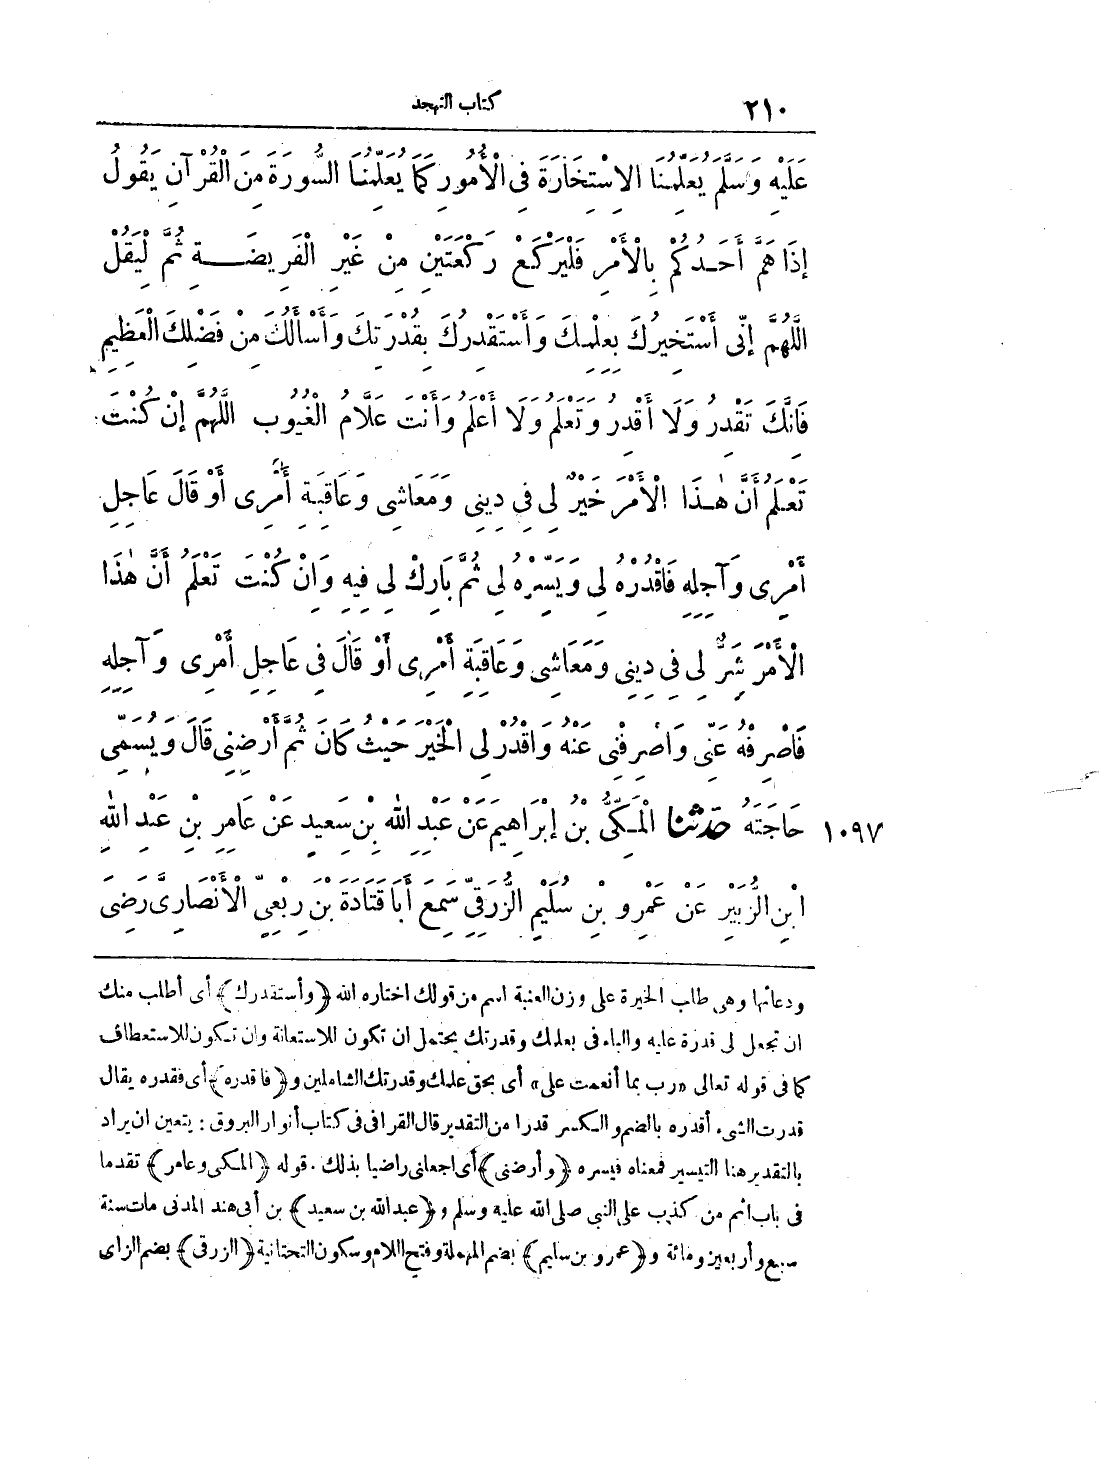 ٢١٠ كتاب التهجد
عَلَيْهِ وَسَلَّمَ يُعَلِّمُنَا الِاسْتِخَارَةَ فِى الْأُمُورِ كَمَا يُعَلِّمُنَا السُّورَةَ مِنَ الْقُرْآنِ يَقُولُ
إِذَا هَمَّ أَحَدُكُمْ بِالْأَمْرِ فَلْيَرْكَعْ رَكْعَتَيْنِ مِنْ غَيْرِ الْفَرِيضَةِ ثُمَّ لْيَقُلْ
اللَّهُمَّ إِنِّى أَسْتَخِيرُكَ بِعِلْمِكَ وَأَسْتَقْدِرُكَ بِقُدْرَتِكَ وَأَسْأَلُكَ مِنْ فَضْلِكَ الْعَظِيمِ
فَإِنَّكَ تَقْدِرُ وَلَا أَقْدِرُ وَتَعْلَمُ وَلَا أَعْلَمُ وَأَنْتَ عَلَّامُ الْغُيُوبِ اللَّهُمَّ إِنْ كُنْتَ
تَعْلَمُ أَنَّ هٰذَا الْأَمْرَ خَيْرٌ لِى فِى دِينِى وَمَعَاشِى وَعَاقِبَةِ أَمْرِى أَوْ قَالَ عَاجِلِ
أَمْرِى وَآجِلِهِ فَاقْدُرْهُ لِى وَيَسِّرْهُ لِى ثُمَّ بَارِكْ لِى فِيهِ وَإِنْ كُنْتَ تَعْلَمُ أَنَّ هٰذَا
الْأَمْرَ شَرٌّ لِى فِى دِينِى وَمَعَاشِى وَعَاقِبَةِ أَمْرِى أَوْ قَالَ فِى عَاجِلِ أَمْرِى وَآجِلِهِ
فَاصْرِفْهُ عَنِّى وَاصْرِفْنِى عَنْهُ وَاقْدُرْ لِى الْخَيْرَ حَيْثُ كَانَ ثُمَّ أَرْضِنِى قَالَ وَيُسَمِّى
١٠٩٧ حَاجَتَهُ حَدَّثَنَا الْمَكِّىُّ بْنُ إِبْرَاهِيمَ عَنْ عَبْدِ اللهِ بْنِ سَعِيدٍ عَنْ عَامِرِ بْنِ عَبْدِ اللهِ
ابْنِ الزُّبَيْرِ عَنْ عَمْرِو بْنِ سُلَيْمٍ الزُّرَقِىِّ سَمِعَ أَبَا قَتَادَةَ بْنَ رِبْعِىٍّ الْأَنْصَارِىَّ رَضِىَ
ودعائها وهى طلب الخيرة على وزن العنبة اسم من قولك اختاره الله ﴿وأستقدرك﴾ أى أطلب منك
ان تجعل لى قدرة عليه والباء فى بعلمك وقدرتك يحتمل ان تكون للاستعانة وان تكون للاستعطاف
كما فى قوله تعالى «رب بما أنعمت على» أى بحق علمك وقدرتك الشاملين و﴿فاقدره﴾ أى فقدره يقال
قدرت الشىء أقدره بالضم والكسر قدرا من التقدير قال القرافى فى كتاب أنوار البروق : يتعين ان يراد
بالتقدير هنا التيسير فمعناه فيسره ﴿وأرضنى﴾ أى اجعلنى راضيا بذلك . قوله ﴿المكى وعامر﴾ تقدما
فى باب اثم من كذب على النبى صلى الله عليه وسلم و﴿عبد الله بن سعيد﴾ بن أبى هند المدنى مات سنة
سبع وأربعين ومائة و﴿عمرو بن سليم﴾ بضم المهملة وفتح اللام وسكون التحتانية ﴿الزرقى﴾ بضم الزاى